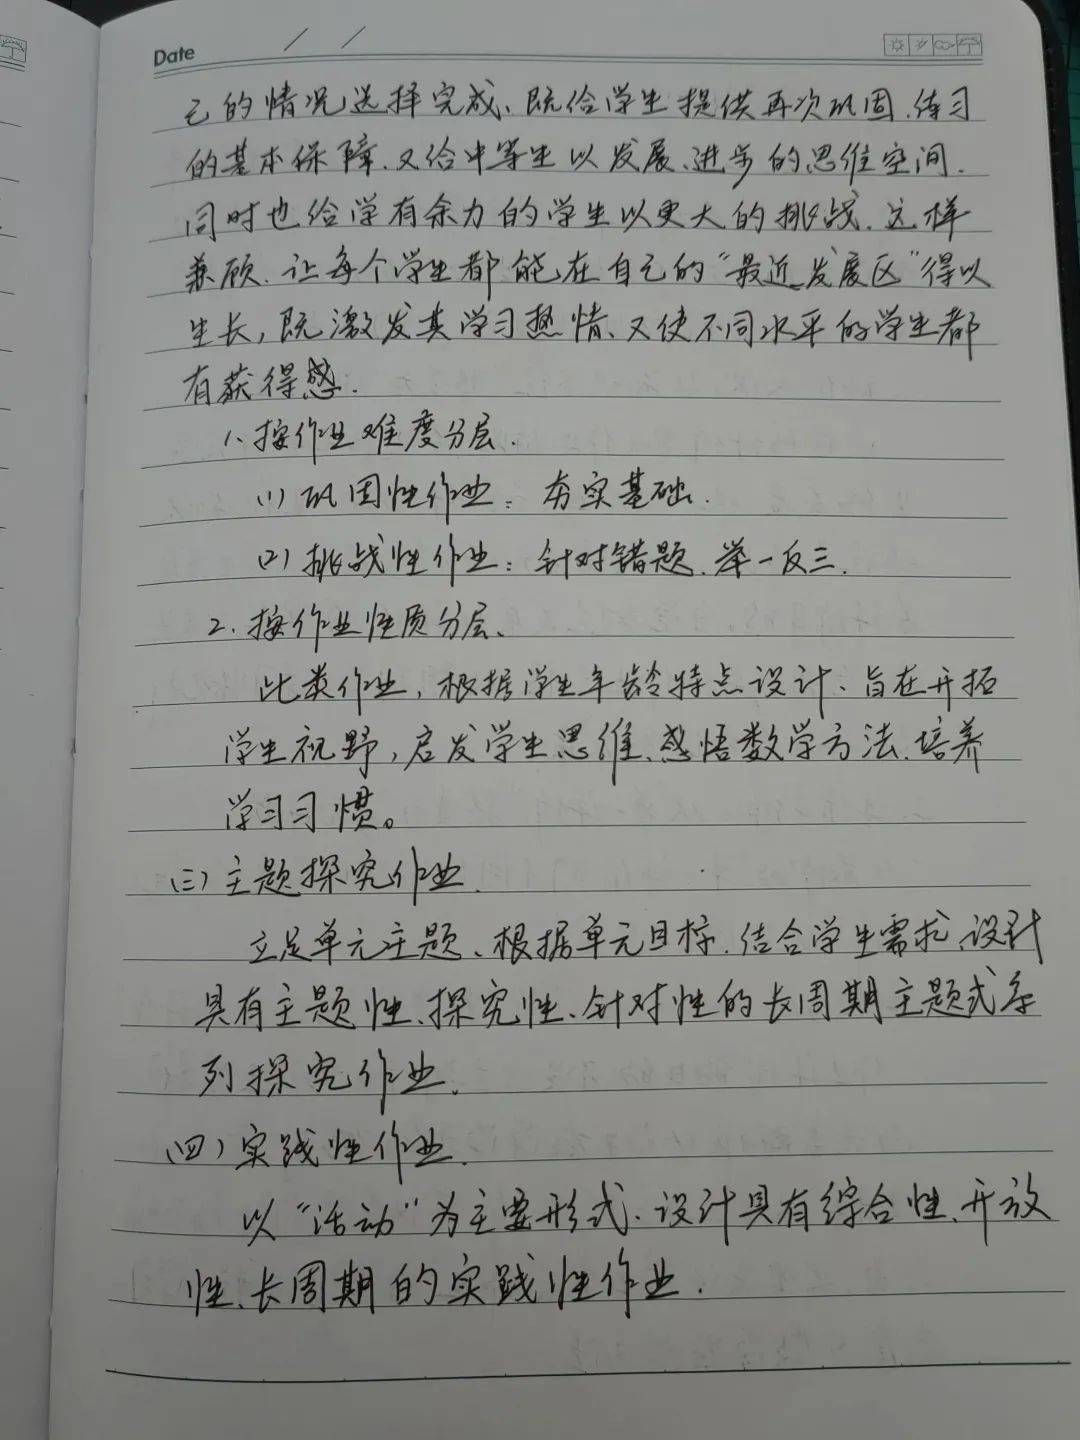 Date / /
己的情况选择完成、既给学生提供再次巩固、练习
的基本保障、又给中等生以发展、进步的思维空间.
同时也给学有余力的学生以更大的挑战. 这样
兼顾. 让每个学生都能在自己的“最近发展区”得以
生长, 既激发其学习热情、又使不同水平的学生都
有获得感.
1、按作业难度分层.
(1) 巩固性作业: 夯实基础.
(2) 挑战性作业: 针对错题、举一反三.
2. 按作业性质分层、
此类作业, 根据学生年龄特点设计、旨在开拓
学生视野, 启发学生思维、感悟数学方法、培养
学习习惯。
(三) 主题探究作业.
立足单元主题、根据单元目标. 结合学生需求、设计
具有主题性、探究性、针对性的长周期主题式系
列探究作业.
(四) 实践性作业.
以“活动”为主要形式、设计具有综合性、开放
性、长周期的实践性作业.